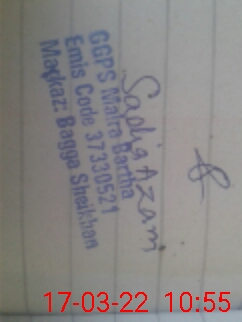 Sadia Azam
GGPS Maira Bartha
Emis Code 37330521
Markaz: Bagga Sheikhan
17-03-22 10:55